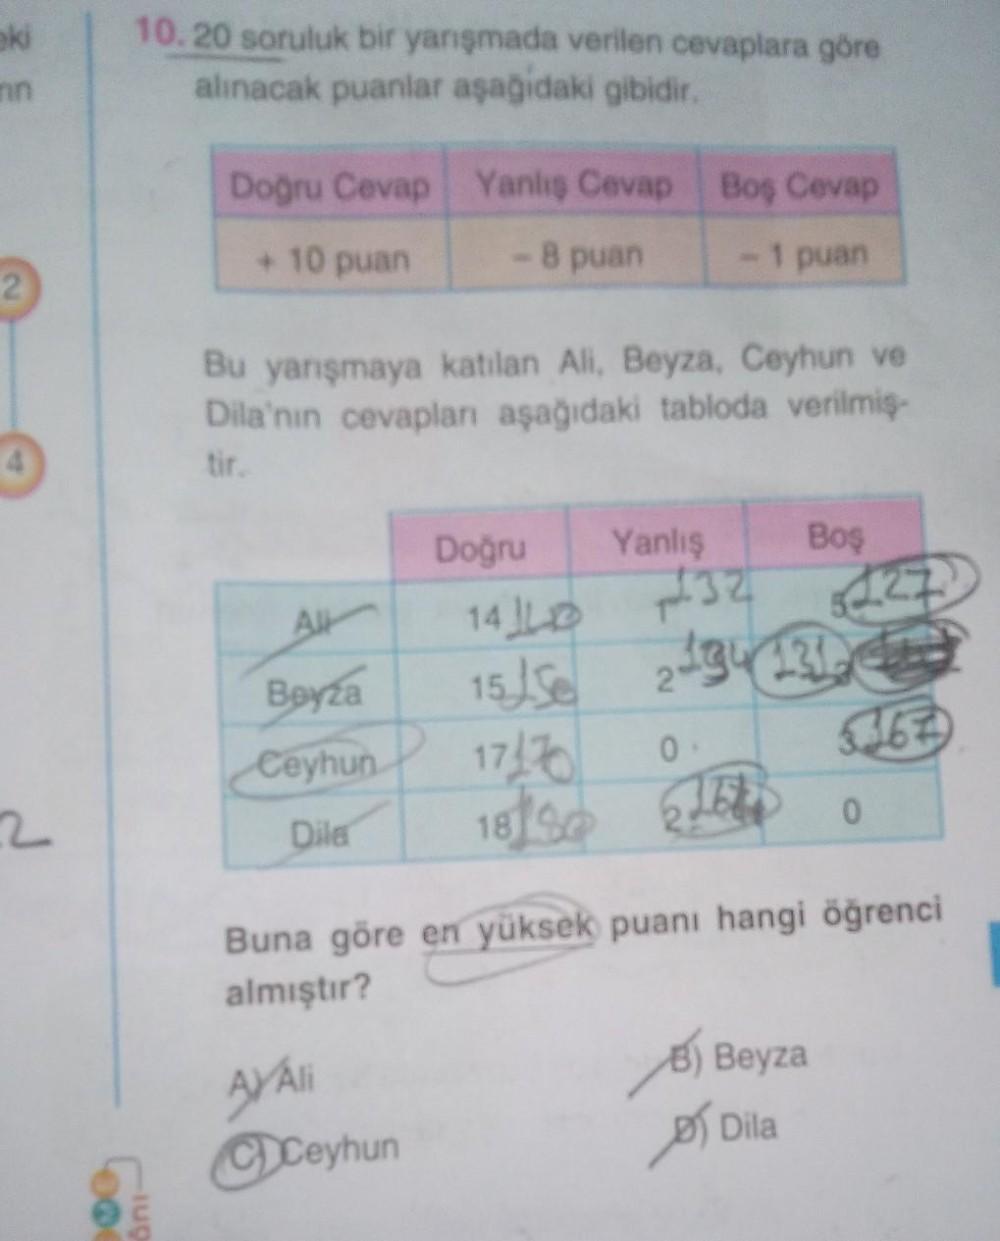 eki
10. 20 soruluk bir yarışmada verilen cevaplara göre
alınacak puanlar aşağıdaki gibidir.
Doğru Cevap Yanlış Cevap Boş Cevap
+ 10 puan - 8 puan - 1 puan
2
Bu yarışmaya katılan Ali, Beyza, Ceyhun ve
Dila'nın cevapları aşağıdaki tabloda verilmiş-
4
tir.
Doğru Yanlış Boş
Ali 14 140 1 132 5 127
Beyza 15 150 2 134 131 3
Ceyhun 17 170 0 3 167
Dila 18 180 2 164 0
2
Buna göre en yüksek puanı hangi öğrenci
almıştır?
A) Ali B) Beyza
C) Ceyhun D) Dila